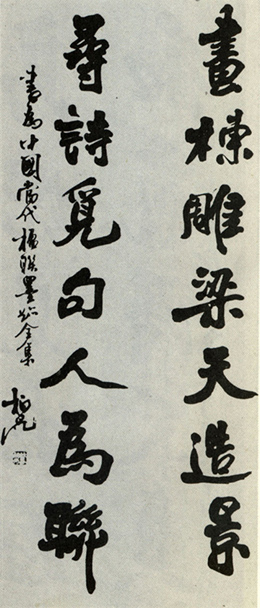 畫棟雕梁天造景
尋詩覓句人為聯
書為中國當代楹聯墨迹全集